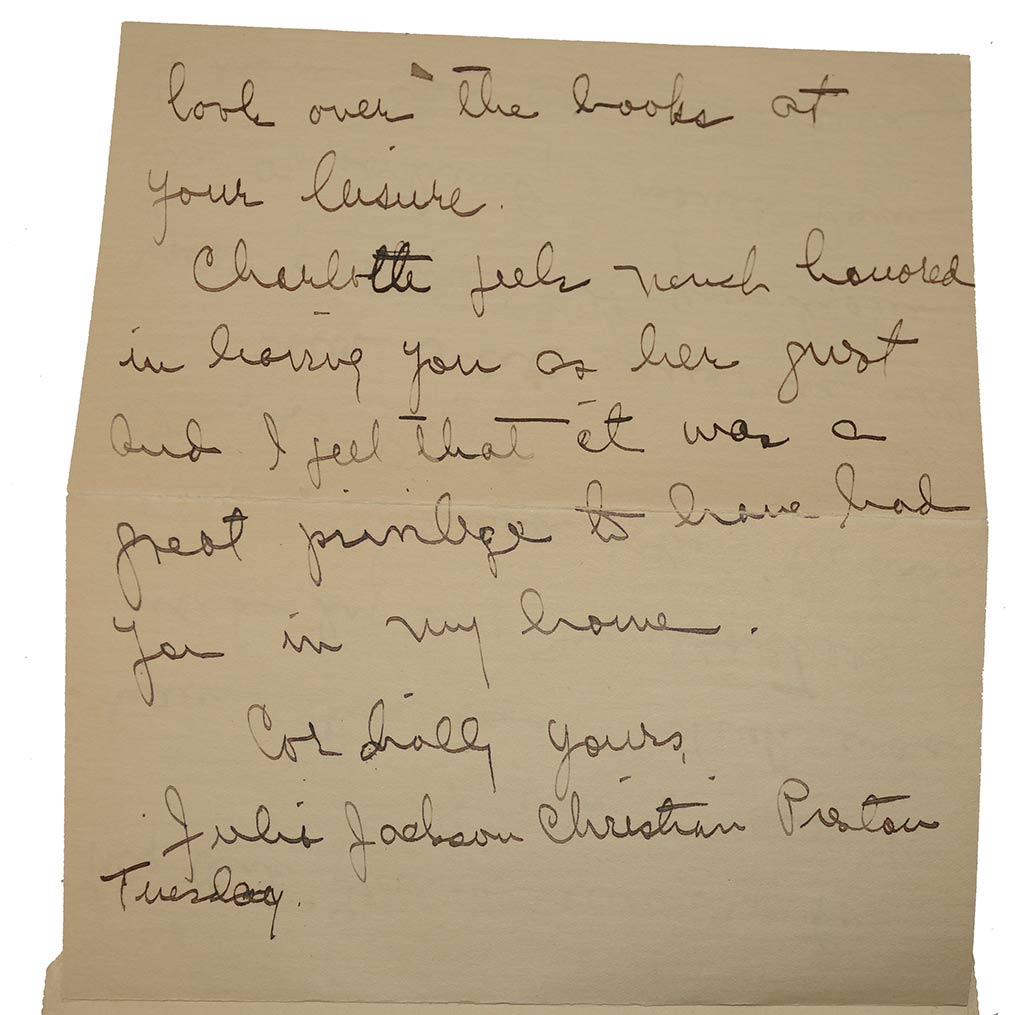 look over the books at
your leisure.
Charlotte feels much honored
in having you as her guest
and I feel that it was a
great privilege to have had
you in my home.
Cordially yours,
Julia Jackson Christian Preston
Tuesday.